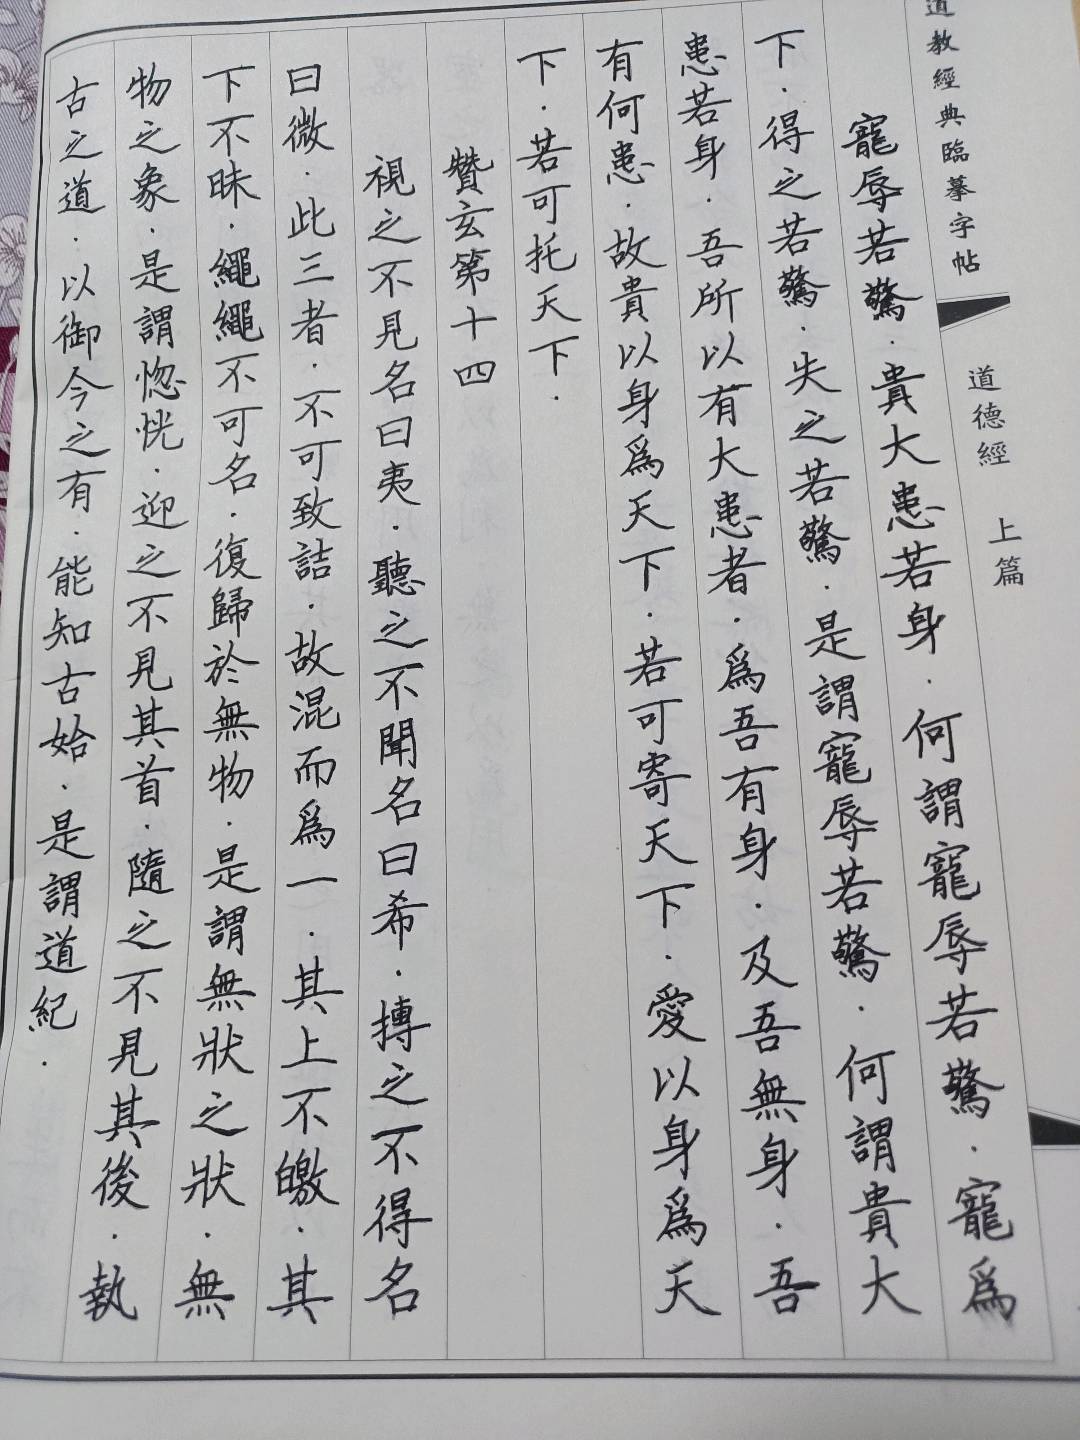 道教經典臨摹字帖
道德經 上篇
寵辱若驚．貴大患若身．何謂寵辱若驚．寵爲
下．得之若驚．失之若驚．是謂寵辱若驚．何謂貴大
患若身．吾所以有大患者．爲吾有身．及吾無身．吾
有何患．故貴以身爲天下．若可寄天下．愛以身爲天
下．若可托天下．
贊玄第十四
視之不見名曰夷．聽之不聞名曰希．摶之不得名
曰微．此三者．不可致詰．故混而爲一．其上不皦．其
下不昧．繩繩不可名．復歸於無物．是謂無狀之狀．無
物之象．是謂惚恍．迎之不見其首．隨之不見其後．執
古之道．以御今之有．能知古始．是謂道紀．